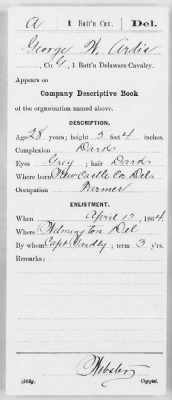 A | 1 Batt'n Cav. | Del.
George W. Artis
, Co. G, 1 Batt'n Delaware Cavalry.
Appears on
Company Descriptive Book
of the organization named above.
DESCRIPTION.
Age 28 years; height 5 feet 4 inches.
Complexion Dark
Eyes Grey; hair Dark
Where born New Castle Co Del
Occupation Farmer
ENLISTMENT.
When April 12, 1864.
Where Wilmington Del
By whom Capt ; term 3 y'rs.
Remarks:
Webster
Copyist.